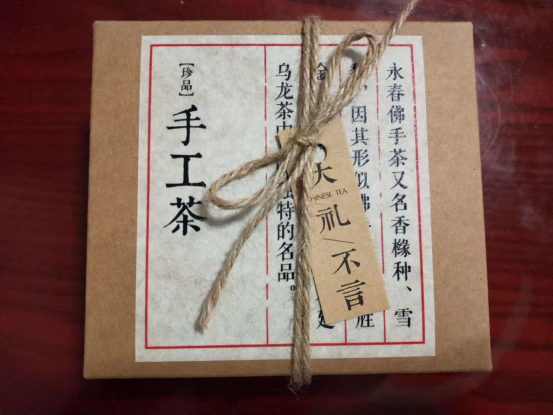 永春佛手茶又名香橼种、雪
因其形似佛
胜
金
乌龙茶中
独特的名品。
【珍品】
手工茶
CHINESE TEA
礼
不言